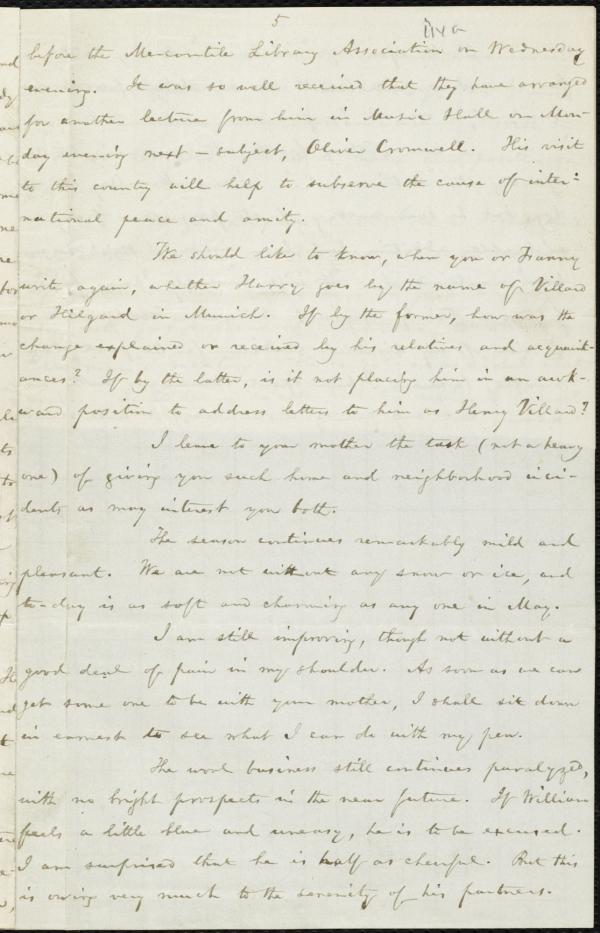 5
before the Mercantile Library Association on Wednesday
evening. It was so well received that they have arranged
for another lecture from him in Music Hall on Mon-
day evening next — subject, Oliver Cromwell. His visit
to this country will help to subserve the cause of inter-
national peace and amity.
We should like to know, when you or Fanny
write again, whether Harry goes by the name of Villard
or Hilgard in Munich. If by the former, how was the
change explained or received by his relatives and acquaint-
ances? If by the latter, is it not placing him in an awk-
ward position to address letters to him as Henry Villard?
I leave to your mother the task (not a heavy
one) of giving you such home and neighborhood inci-
dents as may interest you both.
The season continues remarkably mild and
pleasant. We are not without any snow or ice, and
to-day is as soft and charming as any one in May.
I am still improving, though not without a
good deal of pain in my shoulder. As soon as we can
get some one to be with your mother, I shall sit down
in earnest to see what I can do with my pen.
The wool business still continues paralyzed,
with no bright prospects in the near future. If William
feels a little blue and uneasy, he is to be excused.
I am surprised that he is half as cheerful. But this
is owing very much to the serenity of his partners.